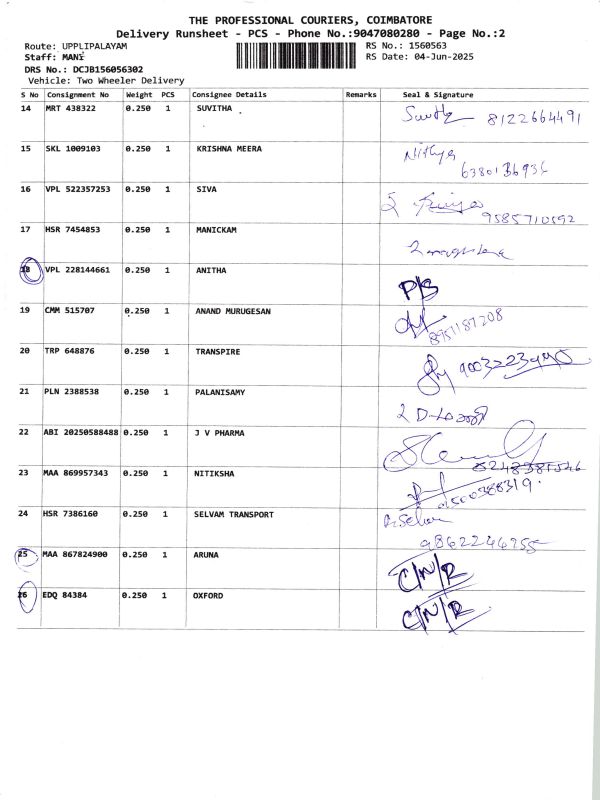 THE PROFESSIONAL COURIERS, COIMBATORE
Delivery Runsheet - PCS - Phone No.:9047080280 - Page No.:2
Route: UPPLIPALAYAM RS No.: 1560563
Staff: MANI RS Date: 04-Jun-2025
DRS No.: DCJB156056302
Vehicle: Two Wheeler Delivery
S No Consignment No Weight PCS Consignee Details Remarks Seal & Signature
14 MRT 438322 0.250 1 SUVITHA 8122664491
15 SKL 1009103 0.250 1 KRISHNA MEERA Nithya
16 VPL 522357253 0.250 1 SIVA
17 HSR 7454853 0.250 1 MANICKAM
18 VPL 228144661 0.250 1 ANITHA P/S
19 CMM 515707 0.250 1 ANAND MURUGESAN
20 TRP 648876 0.250 1 TRANSPIRE
21 PLN 2388538 0.250 1 PALANISAMY
22 ABI 20250588488 0.250 1 J V PHARMA
23 MAA 869957343 0.250 1 NITIKSHA
24 HSR 7386160 0.250 1 SELVAM TRANSPORT
9862246755
25 MAA 867824900 0.250 1 ARUNA C/N/R
26 EDQ 84384 0.250 1 OXFORD C/N/R